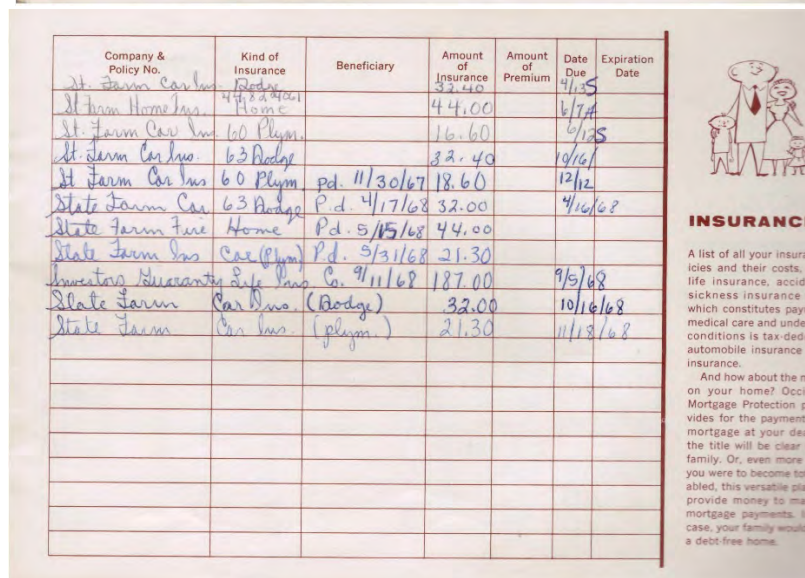 Company & Policy No. Kind of Insurance Beneficiary Amount of Insurance Amount of Premium Date Due Expiration Date
St. Farm Car Ins. Dodge 32.40 4/13
4482 2406
St Farm Home Ins. Home 44.00 6/7
St. Farm Car Ins 60 Plym. 16.60 6/12
St. Farm Car Ins. 63 Dodge 32.40 10/16/
St Farm Car Ins 60 Plym pd. 11/30/67 18.60 12/12
State Farm Car 63 Dodge P.d. 4/17/68 32.00 4/16/68
State Farm Fire Home Pd. 5/15/68 44.00
State Farm Ins Car (Plym) P.d. 5/31/68 21.30
Investors Guaranty Life Ins. Co. 9/11/68 187.00 9/5/68
State Farm Car Ins. (Dodge) 32.00 10/16/68
State Farm Car Ins. (plym.) 21.30 11/18/68
INSURANC
A list of all your insur
icies and their costs,
life insurance, accid
sickness insurance
which constitutes pay
medical care and unde
conditions is tax-ded
automobile insurance
insurance.
And how about the
on your home? Occi
Mortgage Protection p
vides for the payment
mortgage at your dea
the title will be clear
family. Or, even more
you were to become to
abled, this versatile pla
provide money to ma
mortgage payments.
case, your family would
a debt-free home.